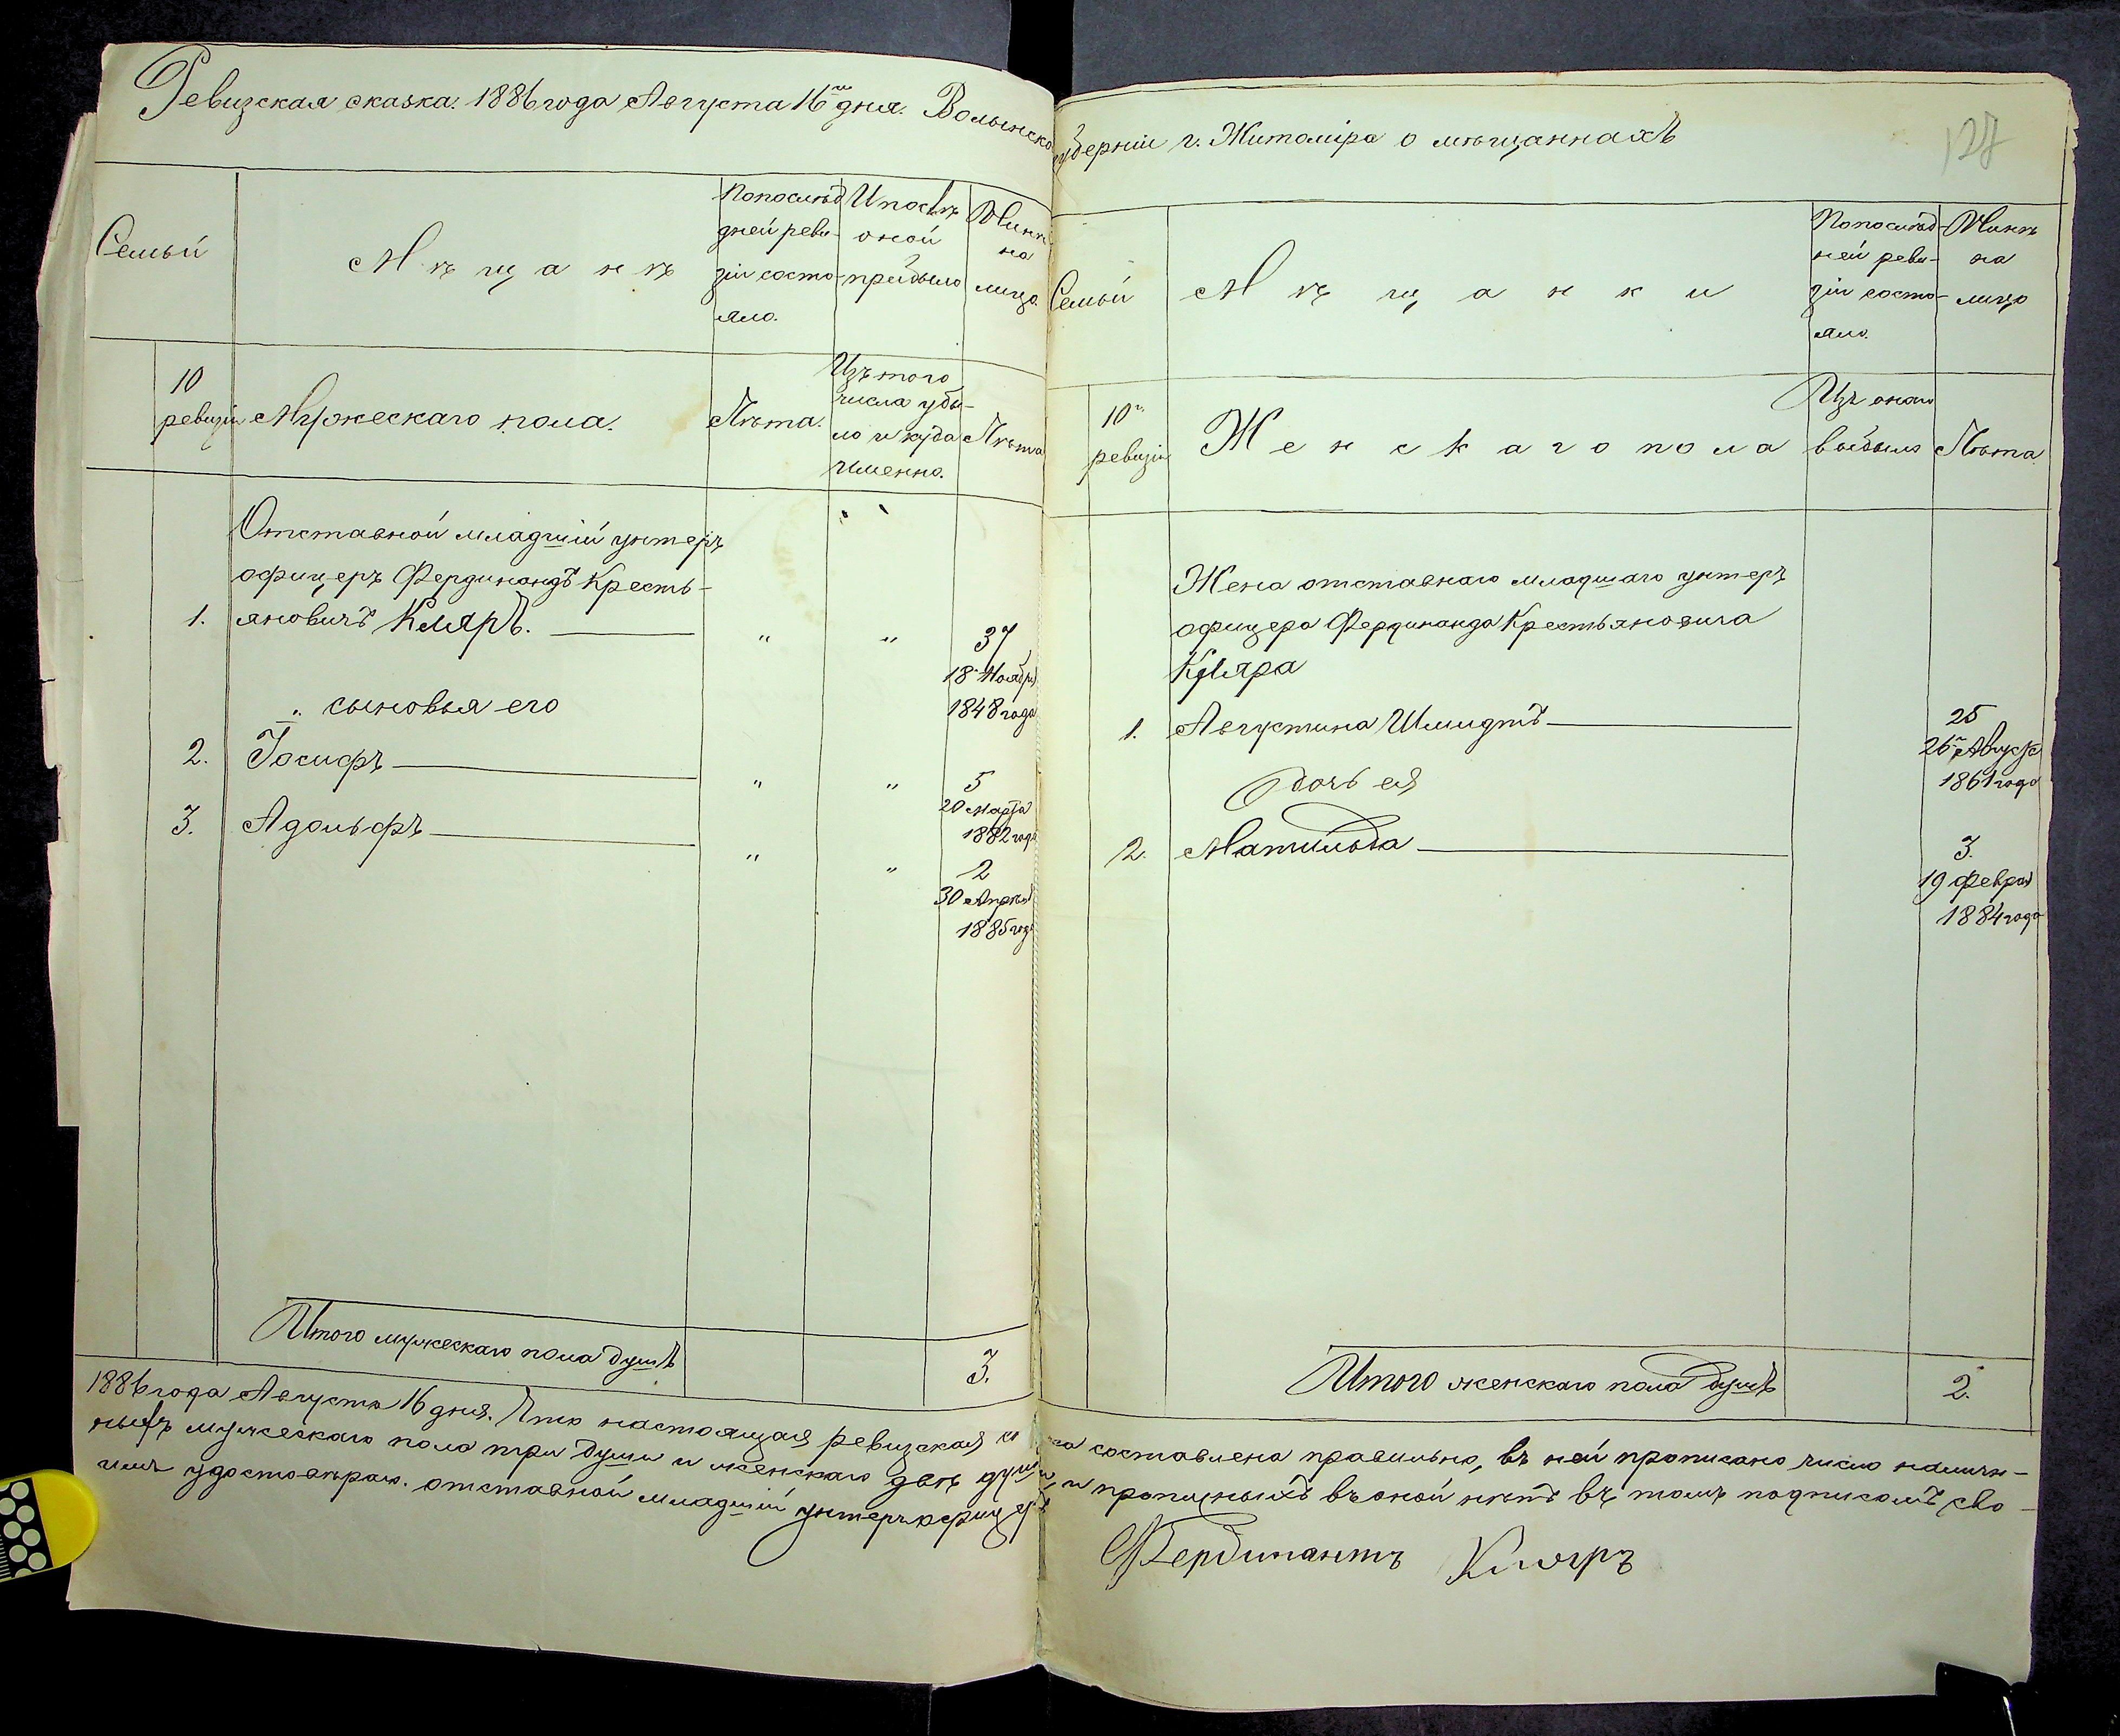 Ревизская сказка. 1886 года Августа 16го дня. Волынско
губерніи г. Житоміра о мѣщаннахъ
127
Семьи
Мѣщанъ
Попослѣд
дней реви-
зіи состо-
яло.
И послѣ
оной
прибыло
Нынѣ
на
лицо
10
ревизіи
Мужескаго пола.
Лѣта.
Изъ того
числа убы-
ло и куда
именно.
Лѣта
Отставной младшій унтеръ
офицеръ Фердинандъ Кресть-
1. яновичъ Кляръ. " " 37
18 Ноября
1848 года
" сыновья его
2. Іосифъ " " 5
20 Марта
1882 года
3. Адольфъ " " 2
30 Апрѣля
1885 года
Итого мужескаго пола душъ 3.
Семьи
Мѣщанки
Попослѣд-
ней реви-
зіи состо-
яло.
Нынѣ
на
лицо
10й
ревизіи
Женскаго пола
Изъ оного
выбыло
Лѣта
Жена отставнаго младшаго унтеръ
офицера Фердинанда Крестьяновича
Кляра
1. Августина Шмидтъ 25
26го Августа
1861 года
Дочь ея
2. Матильда 3.
19 Февраля
1884 года
Итого женскаго пола душъ 2.
1886 года Августа 16 дня. Что настоящая ревизская ска составлена правильно, въ ней прописано число налич-
ныхъ мужескаго пола три души и женскаго двѣ души, и пропущныхъ въ оной нѣтъ въ томъ подписомъ сво-
имъ удостовѣраю. отставной младшій унтеръ офицеръ
Фердинантъ Кляръ